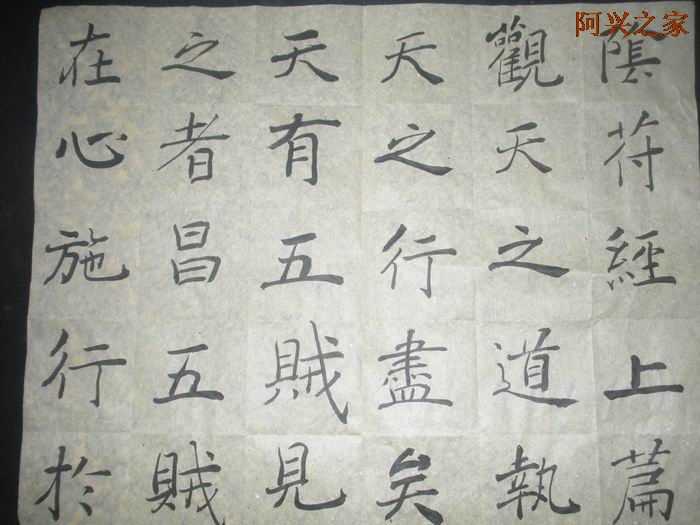 阿兴之家
陰符經上篇
觀天之道執
天之行盡矣
天有五賊見
之者昌五賊
在心施行於